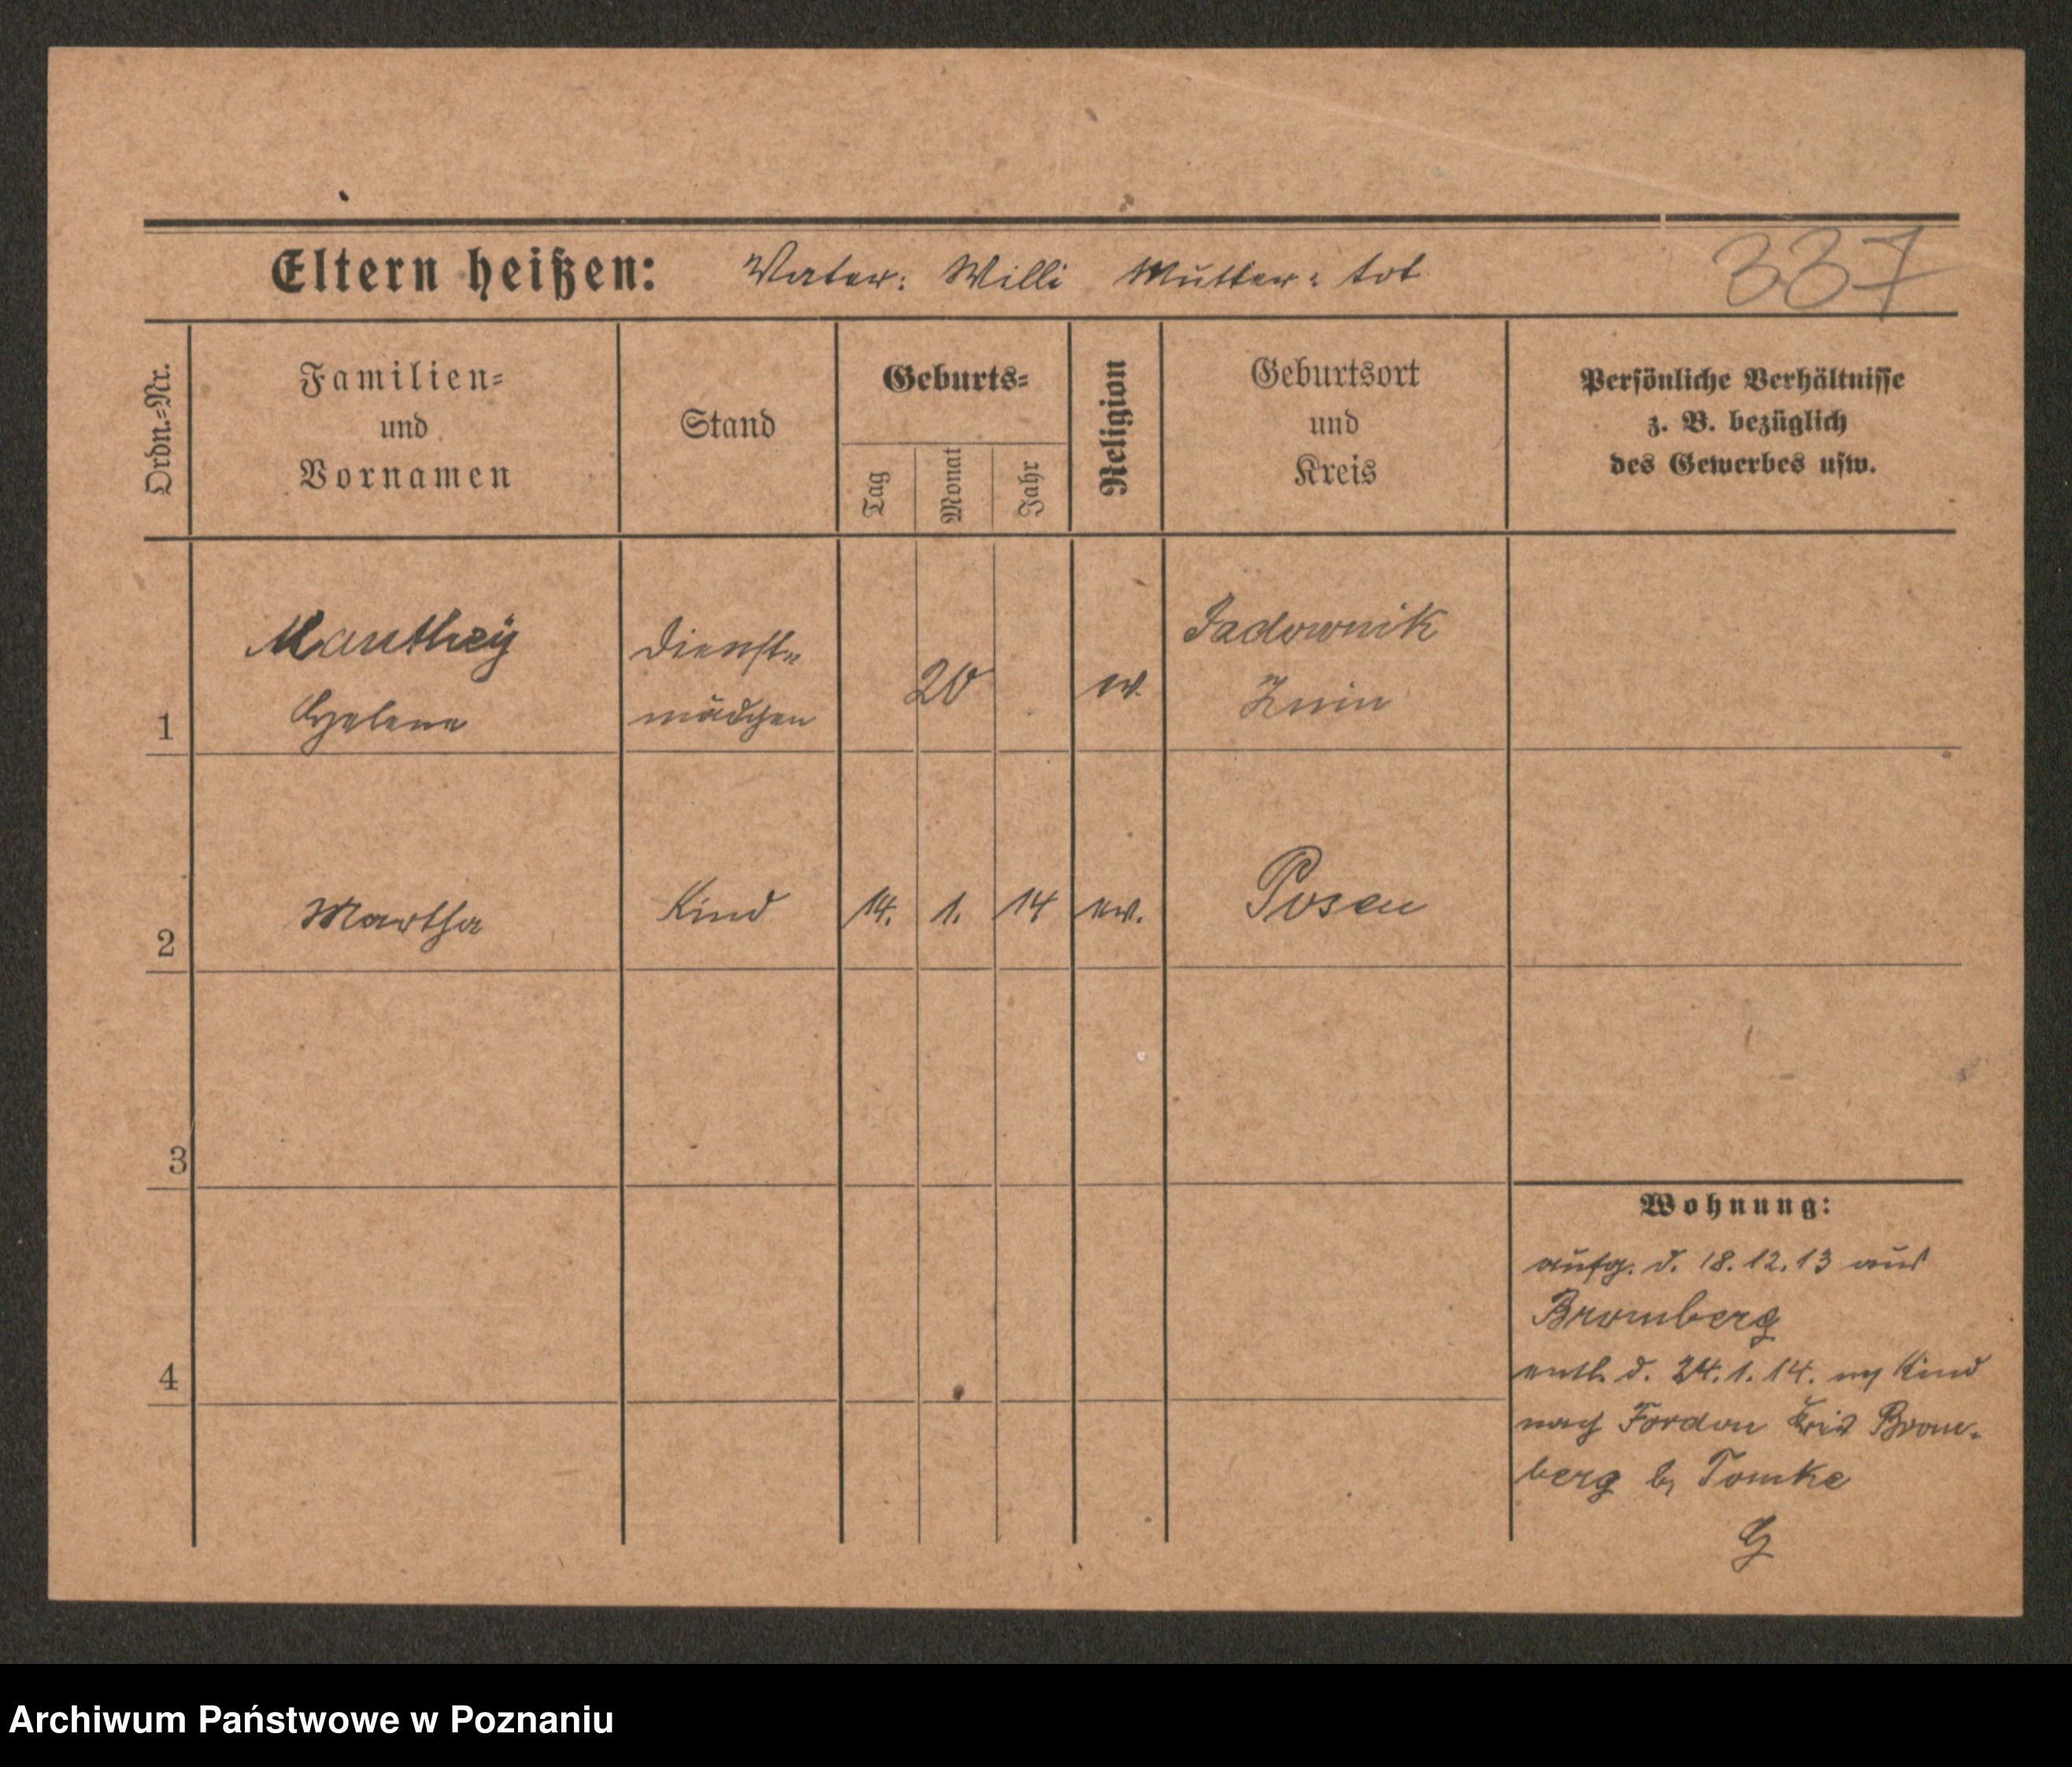 Eltern heißen: Vater: Willi Mutter: tot
337
Ordn.=Nr.
Familien=
und
Vornamen
Stand
Geburts=
Tag
Monat
Jahr
Religion
Geburtsort
und
Kreis
Persönliche Verhältnisse
z. B. bezüglich
des Gewerbes usw.
1
Manthey
Helene
Dienst=
mädchen
20
ev.
Jadownik
Znin
2
Martha
Kind
14.
1.
14
ev.
Posen
3
4
Wohnung:
aufg. d. 18.12.13 aus
Bromberg
entl. d. 24.1.14. m Kind
nach Fordon Kreis Brom-
berg b. Tomke
G
Archiwum Państwowe w Poznaniu